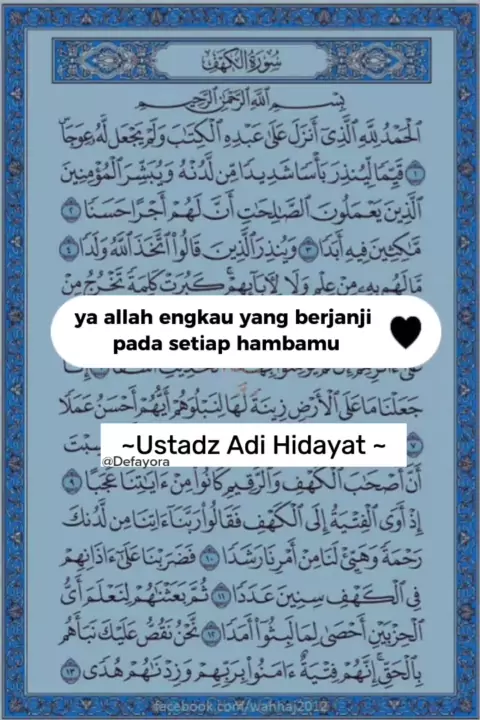 سُورَةُ الْكَهْفِ
بِسْمِ اللَّهِ الرَّحْمَٰنِ الرَّحِيمِ
ٱلْحَمْدُ لِلَّهِ ٱلَّذِىٓ أَنزَلَ عَلَىٰ عَبْدِهِ ٱلْكِتَٰبَ وَلَمْ يَجْعَل لَّهُۥ عِوَجَاۜ
١ قَيِّمًا لِّيُنذِرَ بَأْسًا شَدِيدًا مِّن لَّدُنْهُ وَيُبَشِّرَ ٱلْمُؤْمِنِينَ
ٱلَّذِينَ يَعْمَلُونَ ٱلصَّٰلِحَٰتِ أَنَّ لَهُمْ أَجْرًا حَسَنًا ٢
مَّٰكِثِينَ فِيهِ أَبَدًا ٣ وَيُنذِرَ ٱلَّذِينَ قَالُوا۟ ٱتَّخَذَ ٱللَّهُ وَلَدًا ٤
مَّا لَهُم بِهِۦ مِنْ عِلْمٍ وَلَا لِءَابَآئِهِمْ كَبُرَتْ كَلِمَةً تَخْرُجُ مِنْ
ya allah engkau yang berjanji
pada setiap hambamu
جَعَلْنَا مَا عَلَى ٱلْأَرْضِ زِينَةً لَّهَا لِنَبْلُوَهُمْ أَيُّهُمْ أَحْسَنُ عَمَلًا
٧
~Ustadz Adi Hidayat ~
@Defayora
أَنَّ أَصْحَٰبَ ٱلْكَهْفِ وَٱلرَّقِيمِ كَانُوا۟ مِنْ ءَايَٰتِنَا عَجَبًا ٩
إِذْ أَوَى ٱلْفِتْيَةُ إِلَى ٱلْكَهْفِ فَقَالُوا۟ رَبَّنَآ ءَاتِنَا مِن لَّدُنكَ
رَحْمَةً وَهَيِّئْ لَنَا مِنْ أَمْرِنَا رَشَدًا ١٠ فَضَرَبْنَا عَلَىٰٓ ءَاذَانِهِمْ
فِى ٱلْكَهْفِ سِنِينَ عَدَدًا ١١ ثُمَّ بَعَثْنَٰهُمْ لِنَعْلَمَ أَىُّ
ٱلْحِزْبَيْنِ أَحْصَىٰ لِمَا لَبِثُوٓا۟ أَمَدًا ١٢ نَّحْنُ نَقُصُّ عَلَيْكَ نَبَأَهُم
بِٱلْحَقِّ إِنَّهُمْ فِتْيَةٌ ءَامَنُوا۟ بِرَبِّهِمْ وَزِدْنَٰهُمْ هُدًى ١٣
facebook.com/wahhaj2012